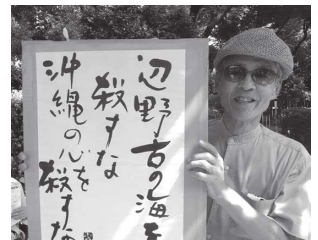 辺野古の海を
殺すな
沖縄の心を
殺すな